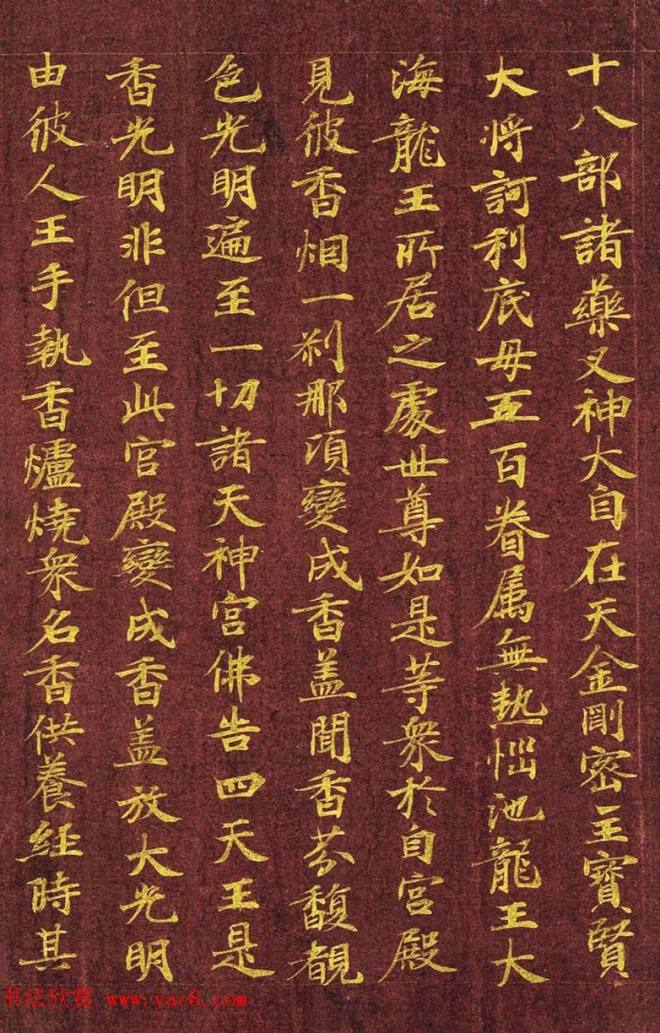 十八部諸藥叉神大自在天金剛密主寶賢
大將訶利底母五百眷属無熱惱池龍王大
海龍王所居之處世尊如是等衆於自宮殿
見彼香烟一刹那頃變成香盖聞香芬馥覩
色光明遍至一切諸天神宮佛告四天王是
香光明非但至此宮殿變成香盖放大光明
由彼人王手執香爐燒衆名香供養経時其
书法欣赏 www.yac8.com